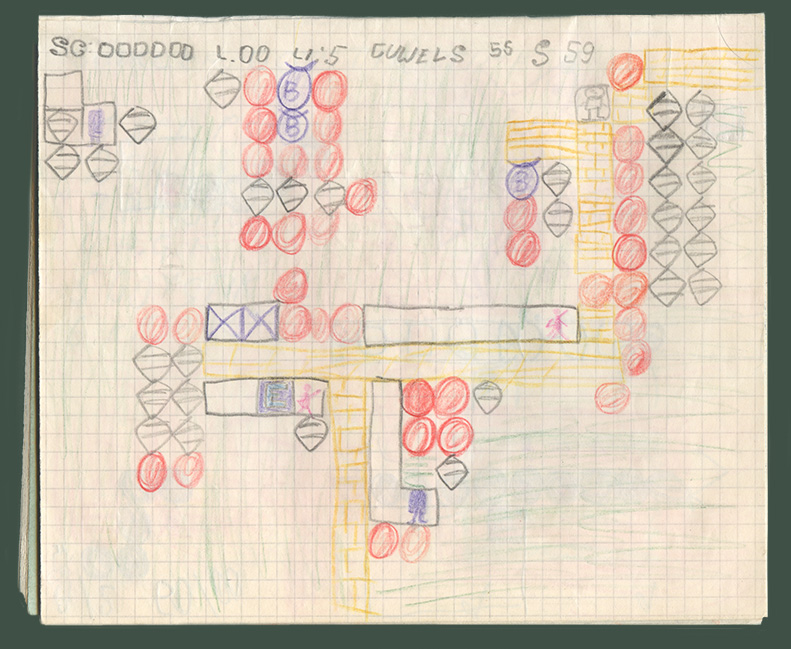 SC:000000 L.00 LI'5 GUWELS 55 S 59
B
B
B